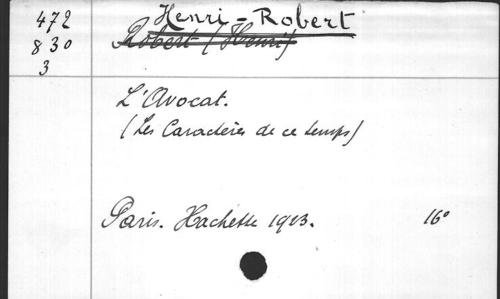 472
830
3
Henri-Robert
Robert (Henri)
L'Avocat.
(Les Caractères de ce temps)
Paris. Hachette 1923.
16°